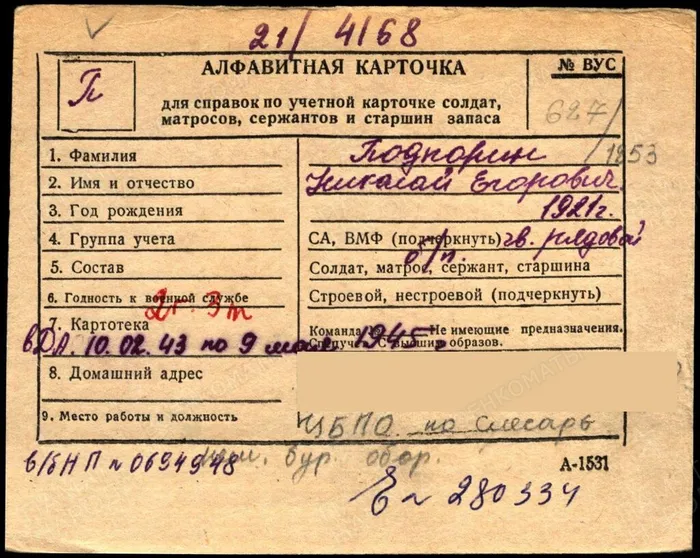 21/4168
АЛФАВИТНАЯ КАРТОЧКА
№ ВУС
П
для справок по учетной карточке солдат,
матросов, сержантов и старшин запаса
627/
1853
1. Фамилия Подпорин
2. Имя и отчество Николай Егорович
3. Год рождения 1921г.
4. Группа учета СА, ВМФ (подчеркнуть) гв. рядовой
5. Состав Солдат, матрос, сержант, старшина
6. Годность к военной службе Строевой, нестроевой (подчеркнуть)
7. Картотека Команда Не имеющие предназначения.
10.02.43 по 9 мая 1945
8. Домашний адрес
9. Место работы и должность ЦБПО по слесарь
бур. обор.
в/б НП № 0694948
А-1531
280334